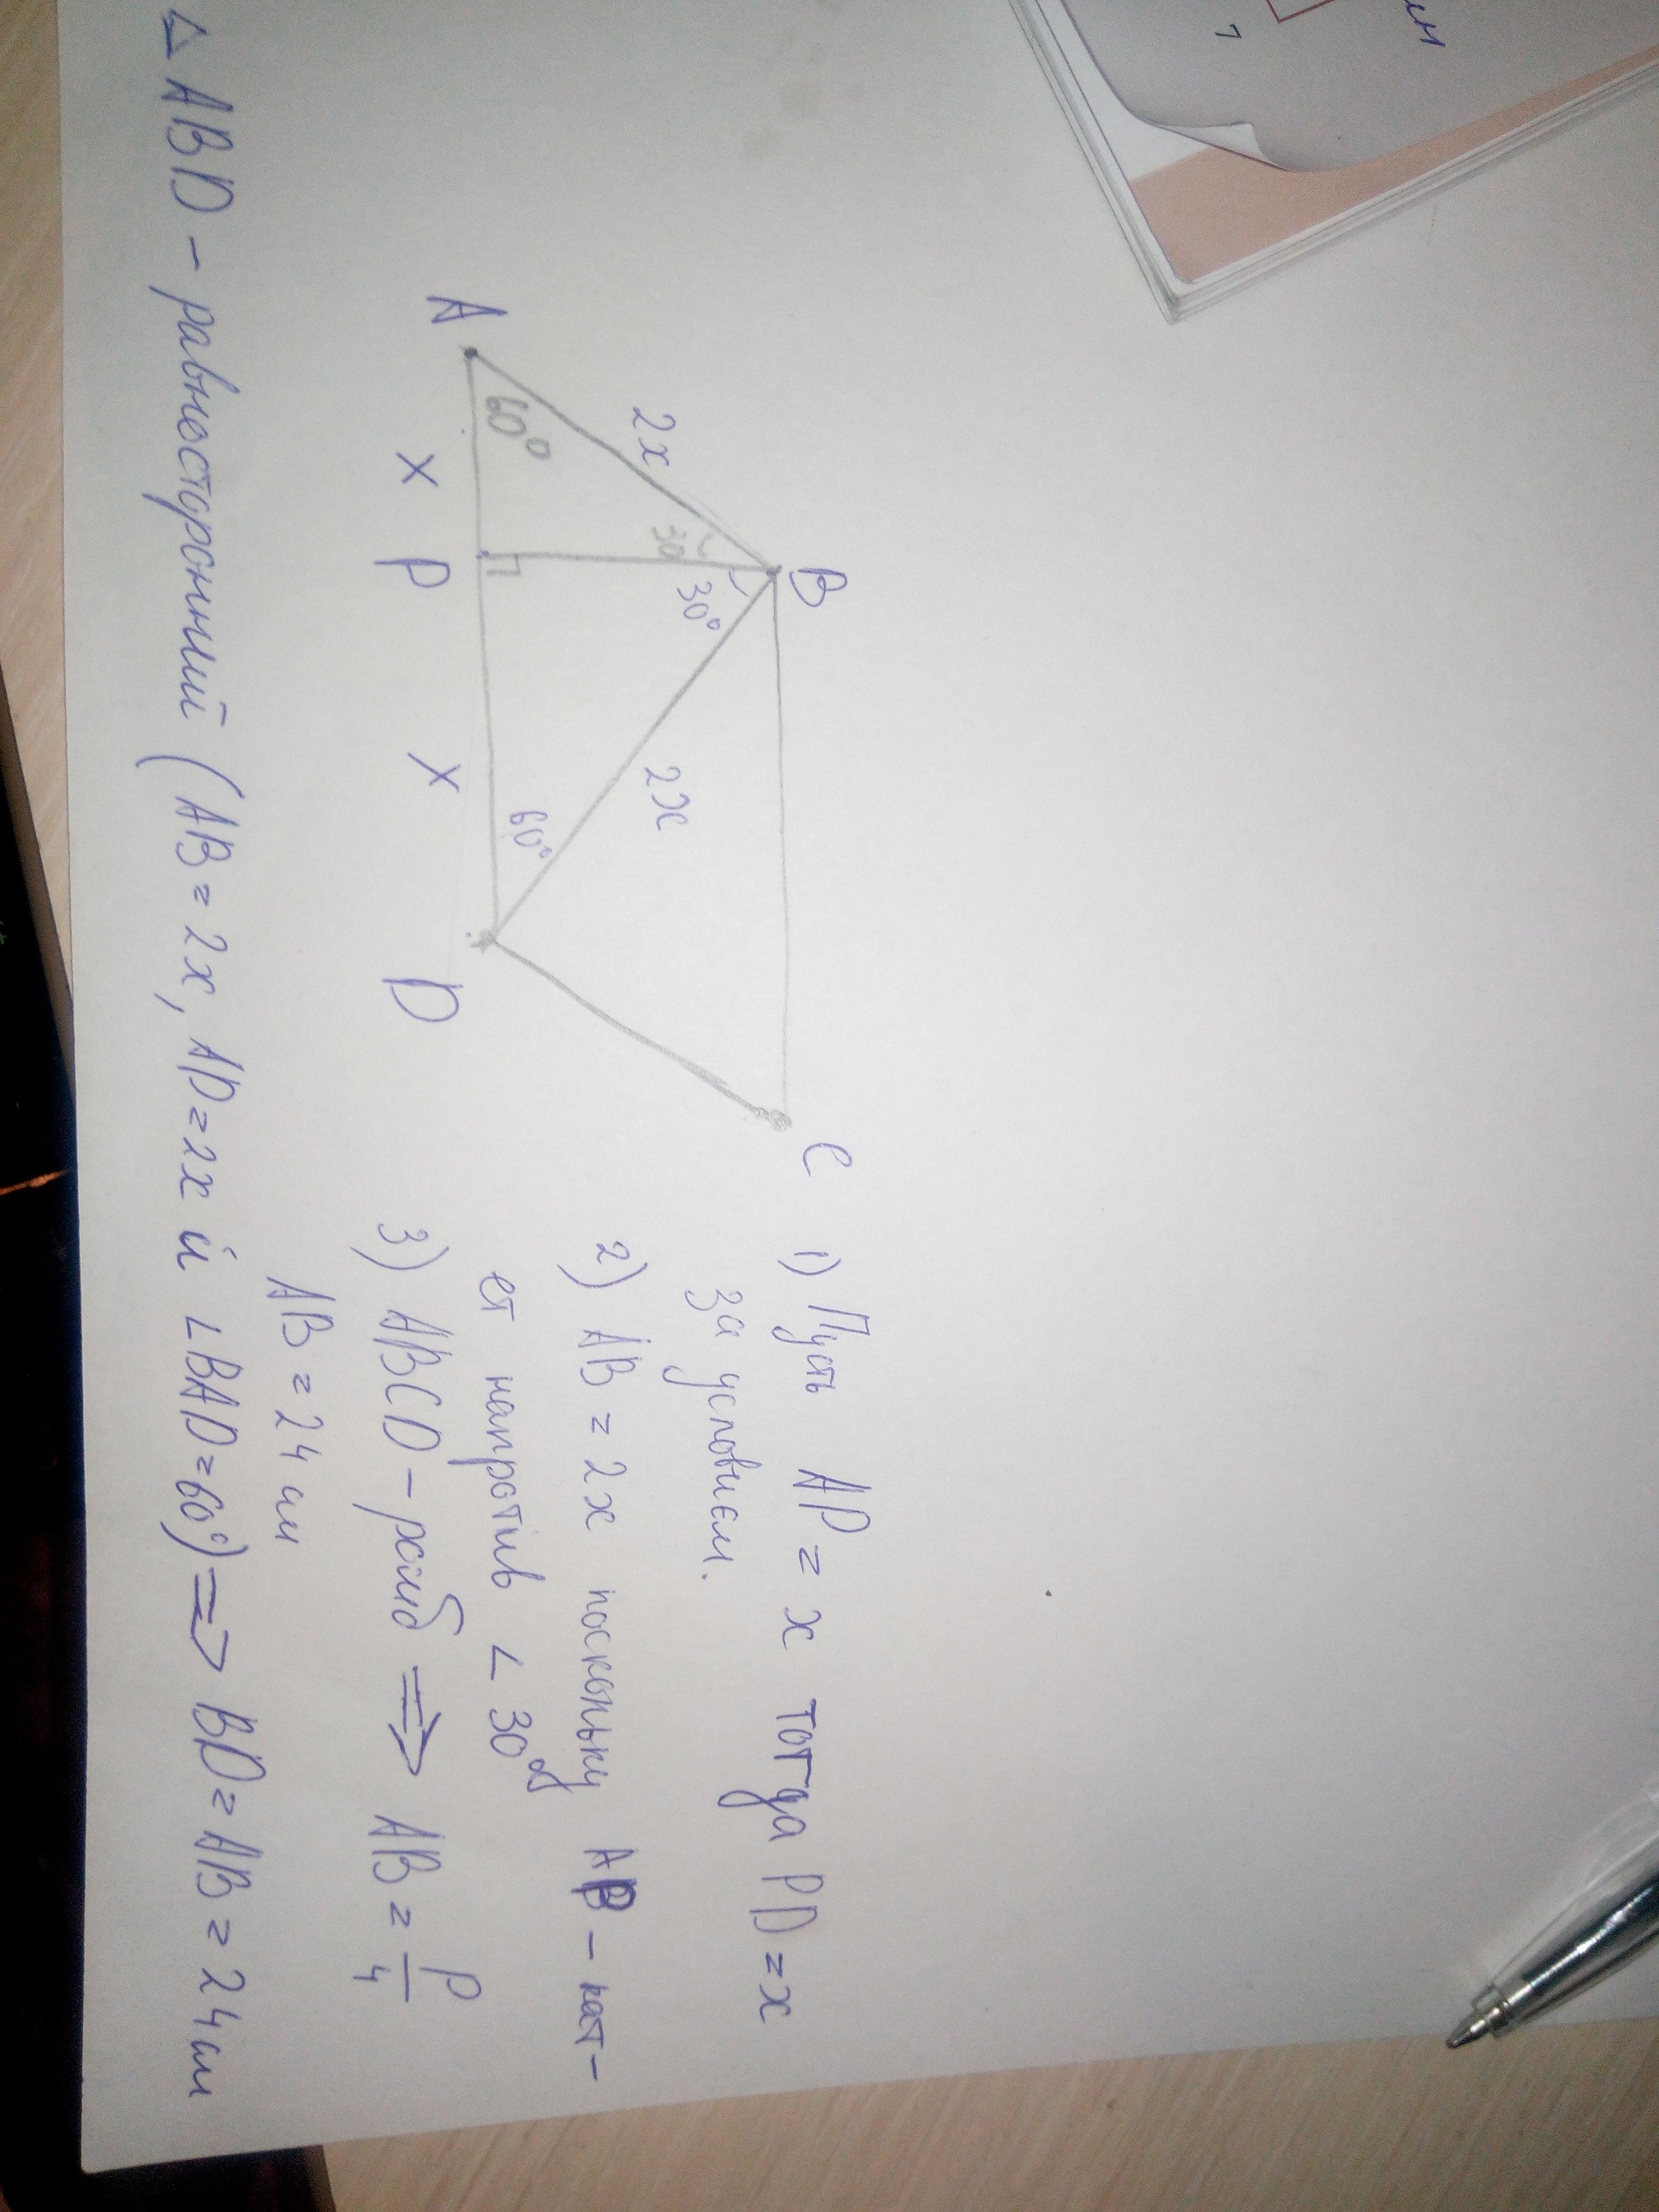 B
C
2x
30
30°
2x
60°
60°
A
x
P
x
D
1) Пусть AP = x тогда PD = x
за условием.
2) AB = 2x поскольку AP – кат-
ет напротив ∠ 30°
3) ABCD – ромб ⟹ AB = P/4
AB = 24 см
△ ABD – равносторонний (AB = 2x, AD = 2x й ∠BAD = 60°) ⟹ BD = AB = 24 см